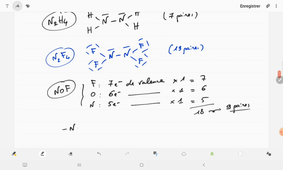 Enregistrer
N₂H₄ H H N – N H H (7 paires)
N₂F₄ F F N – N F F (13 paires)
NOF F : 7e⁻ de valence × 1 = 7
O : 6e⁻ ——— × 1 = 6
N : 5e⁻ ——— × 1 = 5
18 → 9 paires
– N